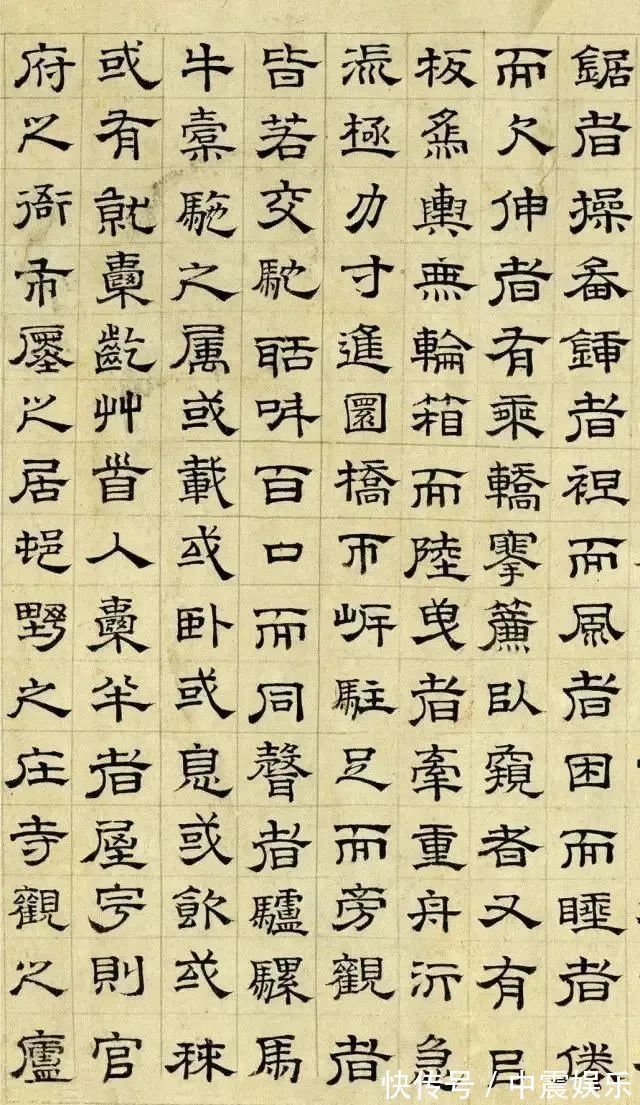 鋸者操畚鍤者袒而風者困而睡者倦
而欠伸者有乘轎搴簾㠯窺者又有㠯
板爲輿無輪箱而陸曳者牽重舟泝急
流極力寸進圜橋帀岸駐足而旁觀者
皆若交聒百口而同聲者驢騾馬
牛橐駞之属或載或卧或息或飲或秣
或有就囊齕艸首入囊半者屋宇則官
府之衙市廛之居邨野之庄寺觀之廬
快传号/中震娱乐